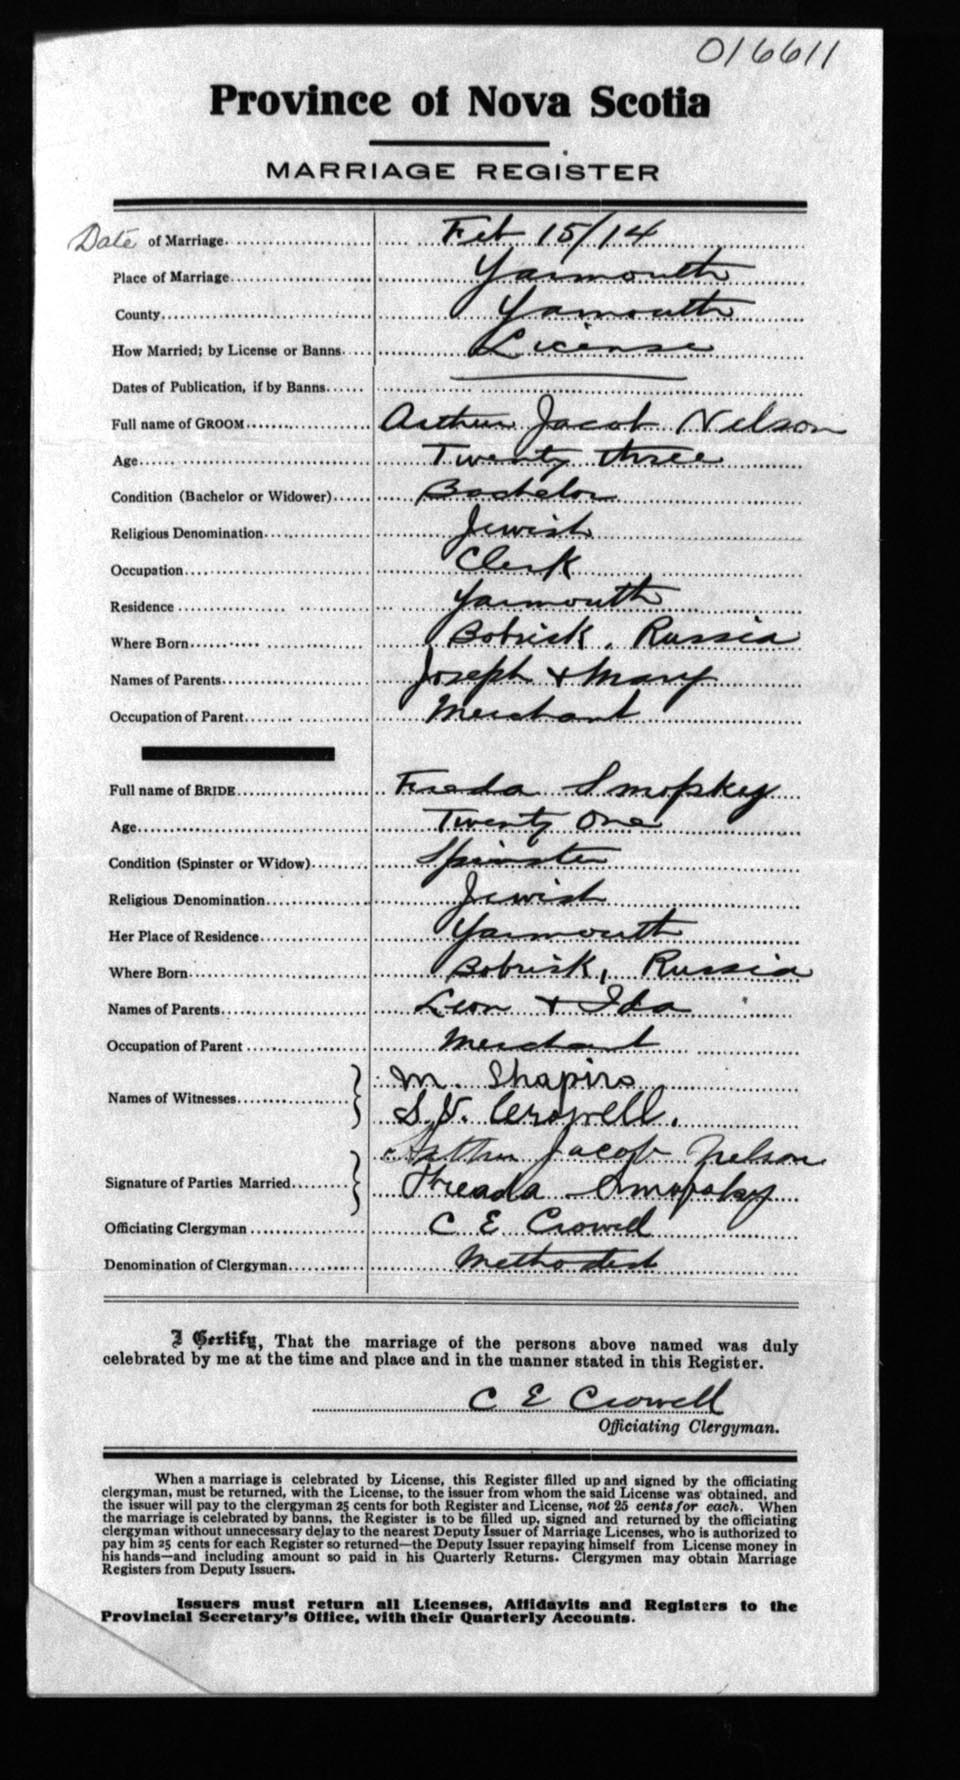 016611
Province of Nova Scotia
MARRIAGE REGISTER
Date of Marriage Feb 15/14
Place of Marriage Yarmouth
County Yarmouth
How Married; by License or Banns License
Dates of Publication, if by Banns
Full name of GROOM Arthur Jacob Nelson
Age Twenty three
Condition (Bachelor or Widower) Bachelor
Religious Denomination Jewish
Occupation Clerk
Residence Yarmouth
Where Born Bobrisk, Russia
Names of Parents Joseph + Mary
Occupation of Parent Merchant
Full name of BRIDE Freda Smofsky
Age Twenty One
Condition (Spinster or Widow) Spinster
Religious Denomination Jewish
Her Place of Residence Yarmouth
Where Born Bobrisk, Russia
Names of Parents Leon + Ida
Occupation of Parent Merchant
Names of Witnesses M. Shapiro
S. V. Crowell.
Signature of Parties Married Arthur Jacob Nelson
Freada Smofsky
Officiating Clergyman C E Crowell
Denomination of Clergyman Methodist
I Certify, That the marriage of the persons above named was duly
celebrated by me at the time and place and in the manner stated in this Register.
C E Crowell
Officiating Clergyman.
When a marriage is celebrated by License, this Register filled up and signed by the officiating
clergyman, must be returned, with the License, to the issuer from whom the said License was obtained, and
the issuer will pay to the clergyman 25 cents for both Register and License, not 25 cents for each. When
the marriage is celebrated by banns, the Register is to be filled up, signed and returned by the officiating
clergyman without unnecessary delay to the nearest Deputy Issuer of Marriage Licenses, who is authorized to
pay him 25 cents for each Register so returned—the Deputy Issuer repaying himself from License money in
his hands—and including amount so paid in his Quarterly Returns. Clergymen may obtain Marriage
Registers from Deputy Issuers.
Issuers must return all Licenses, Affidavits and Registers to the
Provincial Secretary's Office, with their Quarterly Accounts.